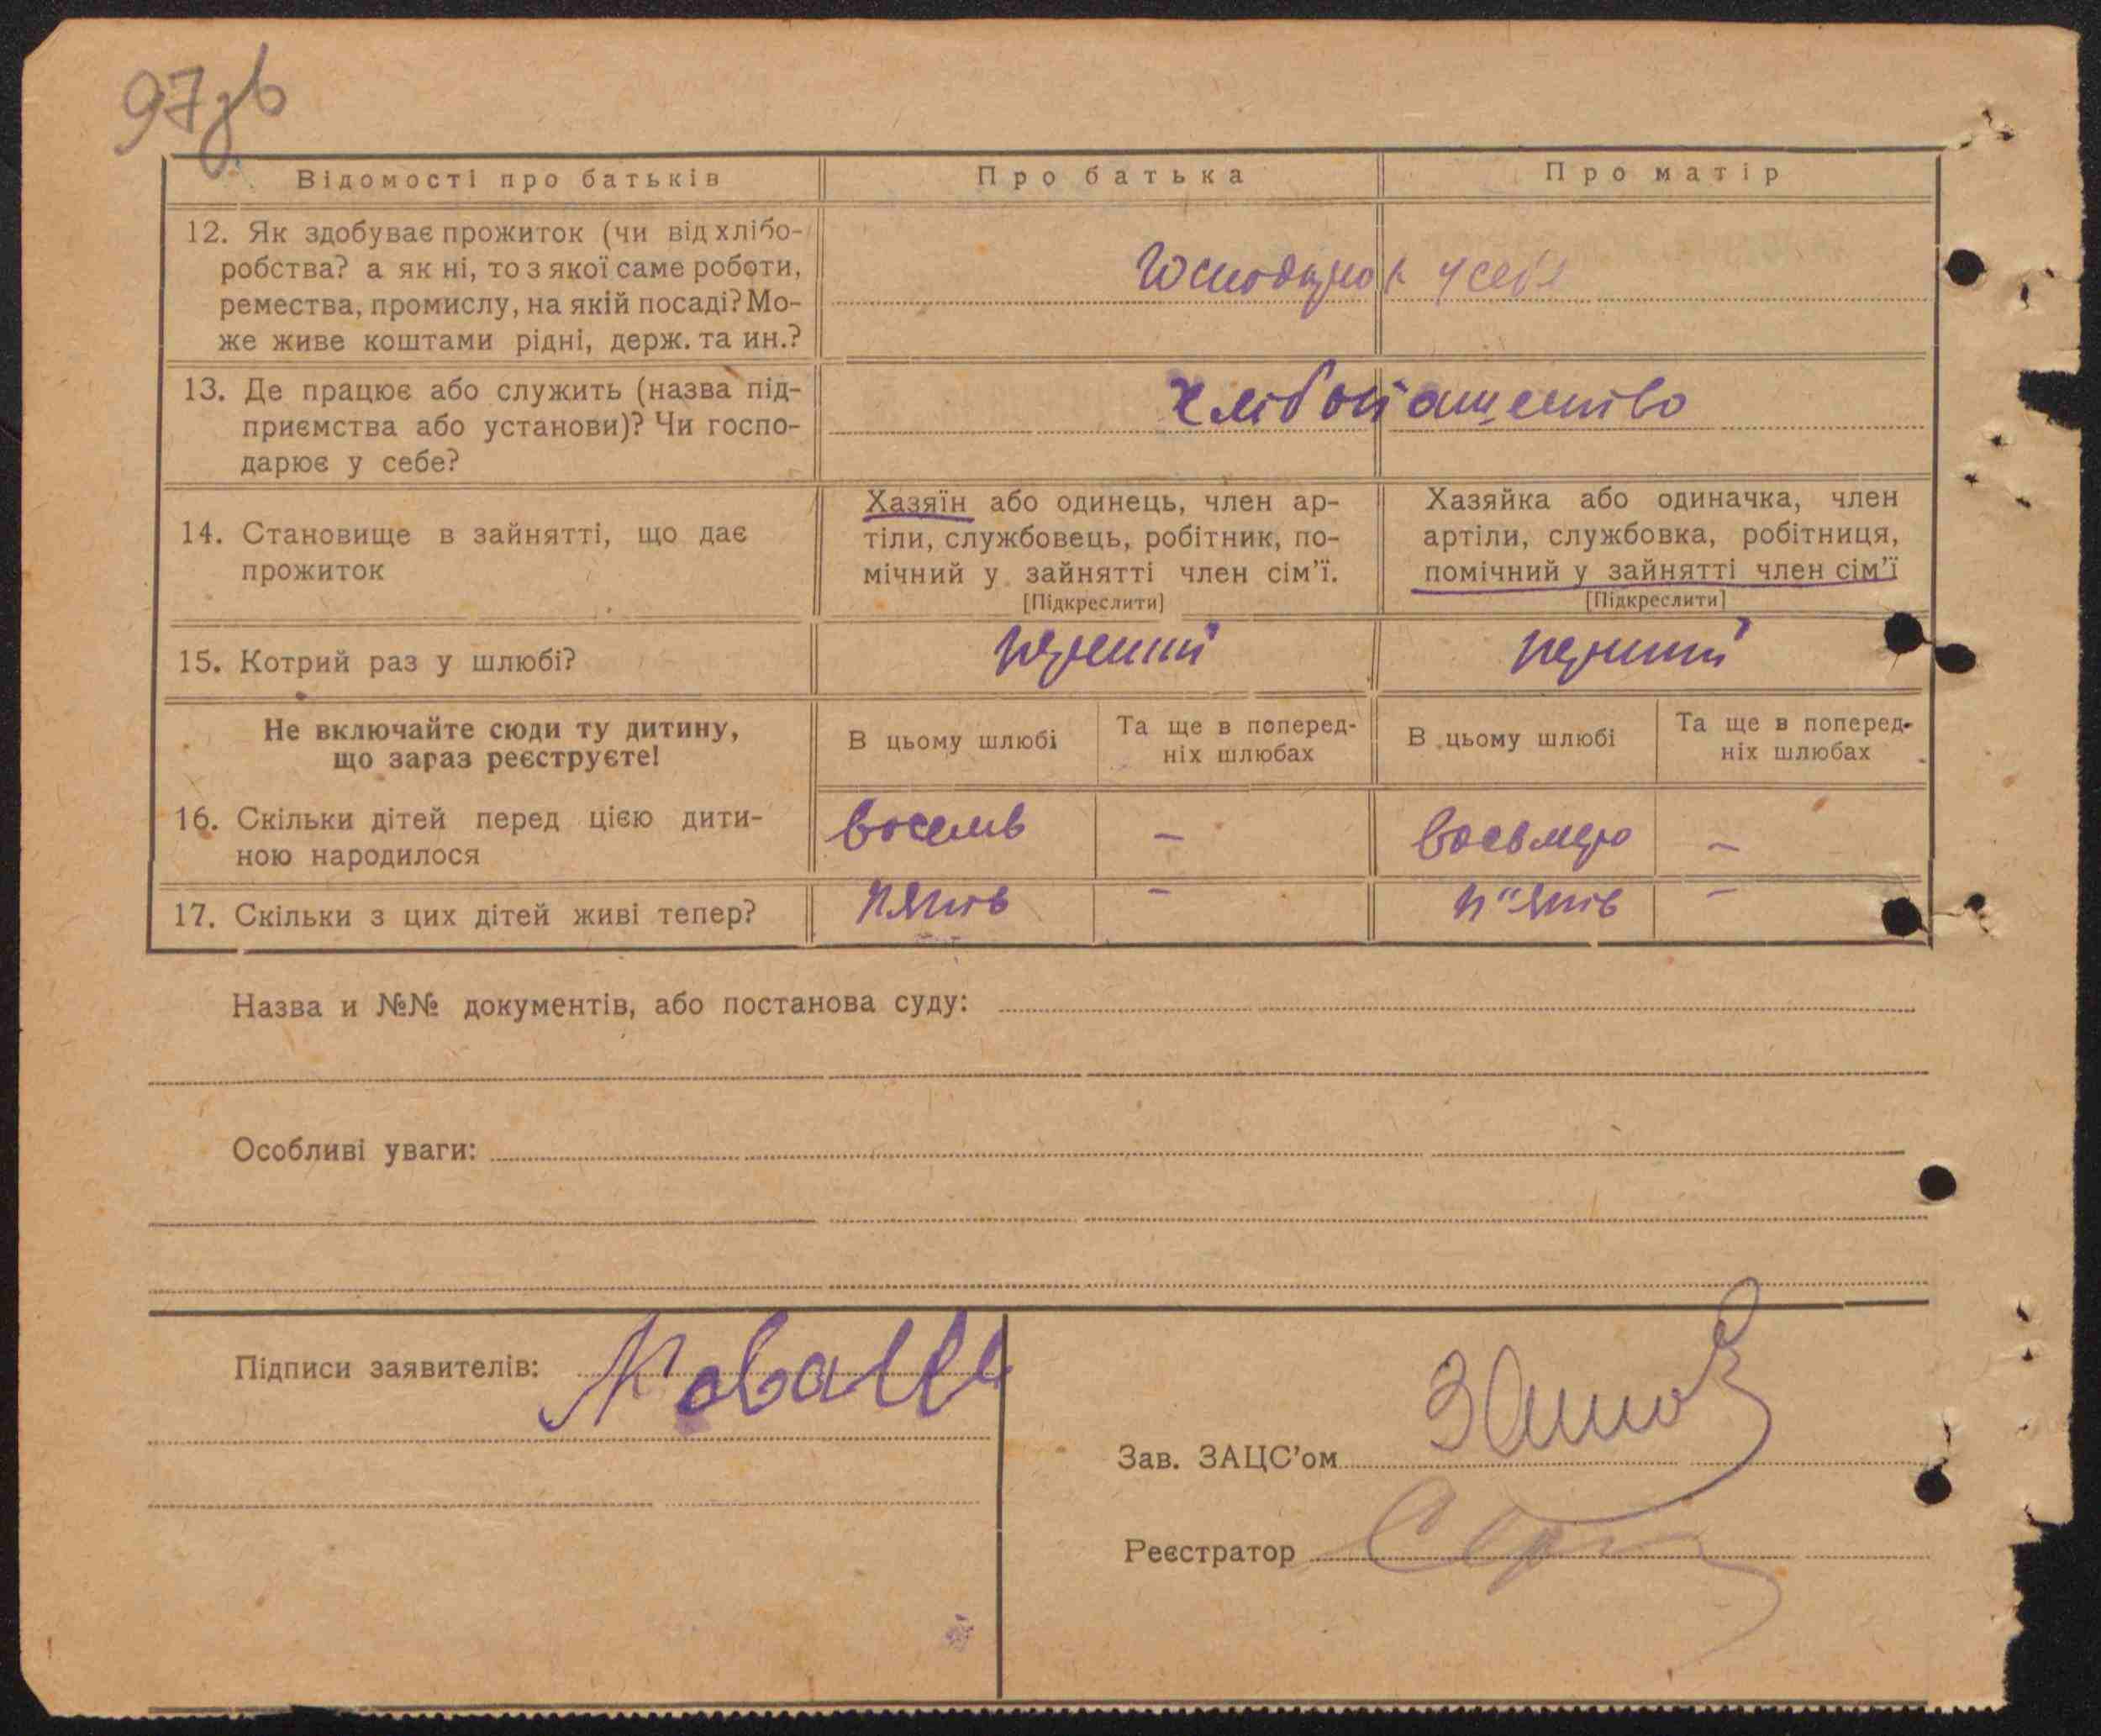 97зв
Відомості про батьків Про батька Про матір
12. Як здобуває прожиток (чи від хлібо-
робства? а як ні, то з якої саме роботи,
ремества, промислу, на якій посаді? Мо-
же живе коштами рідні, держ. та ин.?
Господарює у себе
13. Де працює або служить (назва під-
приємства або установи)? Чи госпо-
дарює у себе?
хлібопашество
14. Становище в зайнятті, що дає
прожиток
Хазяїн або одинець, член ар-
тіли, службовець, робітник, по-
мічний у зайнятті член сім’ї.
[Підкреслити]
Хазяйка або одиначка, член
артіли, службовка, робітниця,
помічний у зайнятті член сім’ї
[Підкреслити]
15. Котрий раз у шлюбі? перший перший
Не включайте сюди ту дитину,
що зараз реєструєте!
В цьому шлюбі
Та ще в поперед-
ніх шлюбах
В цьому шлюбі
Та ще в поперед-
ніх шлюбах
16. Скільки дітей перед цією дити-
ною народилося
восемь – восьмеро –
17. Скільки з цих дітей живі тепер? пять – п"ять –
Назва и №№ документів, або постанова суду:
Особливі уваги:
Підписи заявителів:
Зав. ЗАЦС’ом
Реєстратор